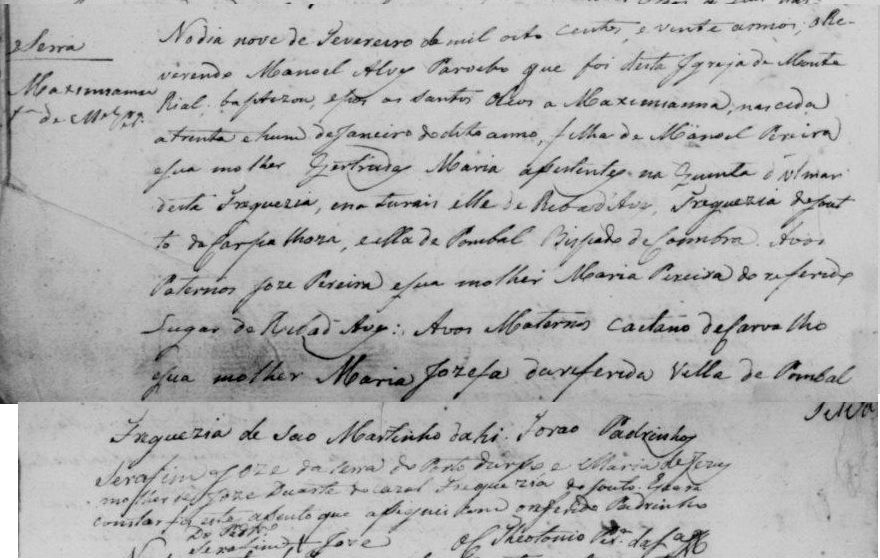 Serra
Maximiana
fª de Mel Pra
No dia nove de Fevereiro de mil oito centos, e vinte annos, o Re-
verendo Manoel Alvez Parocho que foi desta Igreja de Monte
Rial, baptizou, e pos os santos Oleos a Maximianna, nascida
a trinta e hum de Janeiro do dito anno, filha de Manoel Pereira
e sua molher Gertrudes Maria assistentes na Quinta
desta Freguezia, e na turais elle de Riba d'Ave, Freguezia de Sout
to da Carpa lhoza, e ella de Pombal Bispado de Coimbra. Avos
Paternos Joze Pereira e sua molher Maria Pereira do referido
Lugar de Riba d'Ave: Avos Maternos Caetano de Carvalho
e sua molher Maria Jozefa da referida Villa de Pombal
Freguezia de Sao Martinho dahi. Forao Padrinhos
Serafim Joze da Serra do Porto d'urso e Maria de Jezus
molher de Joze Duarte do Cazal Freguezia do Souto. E para
constar fiz este assento que assignei com o referido Padrinho
Do Padrº
Serafim + Joze
Theotonio